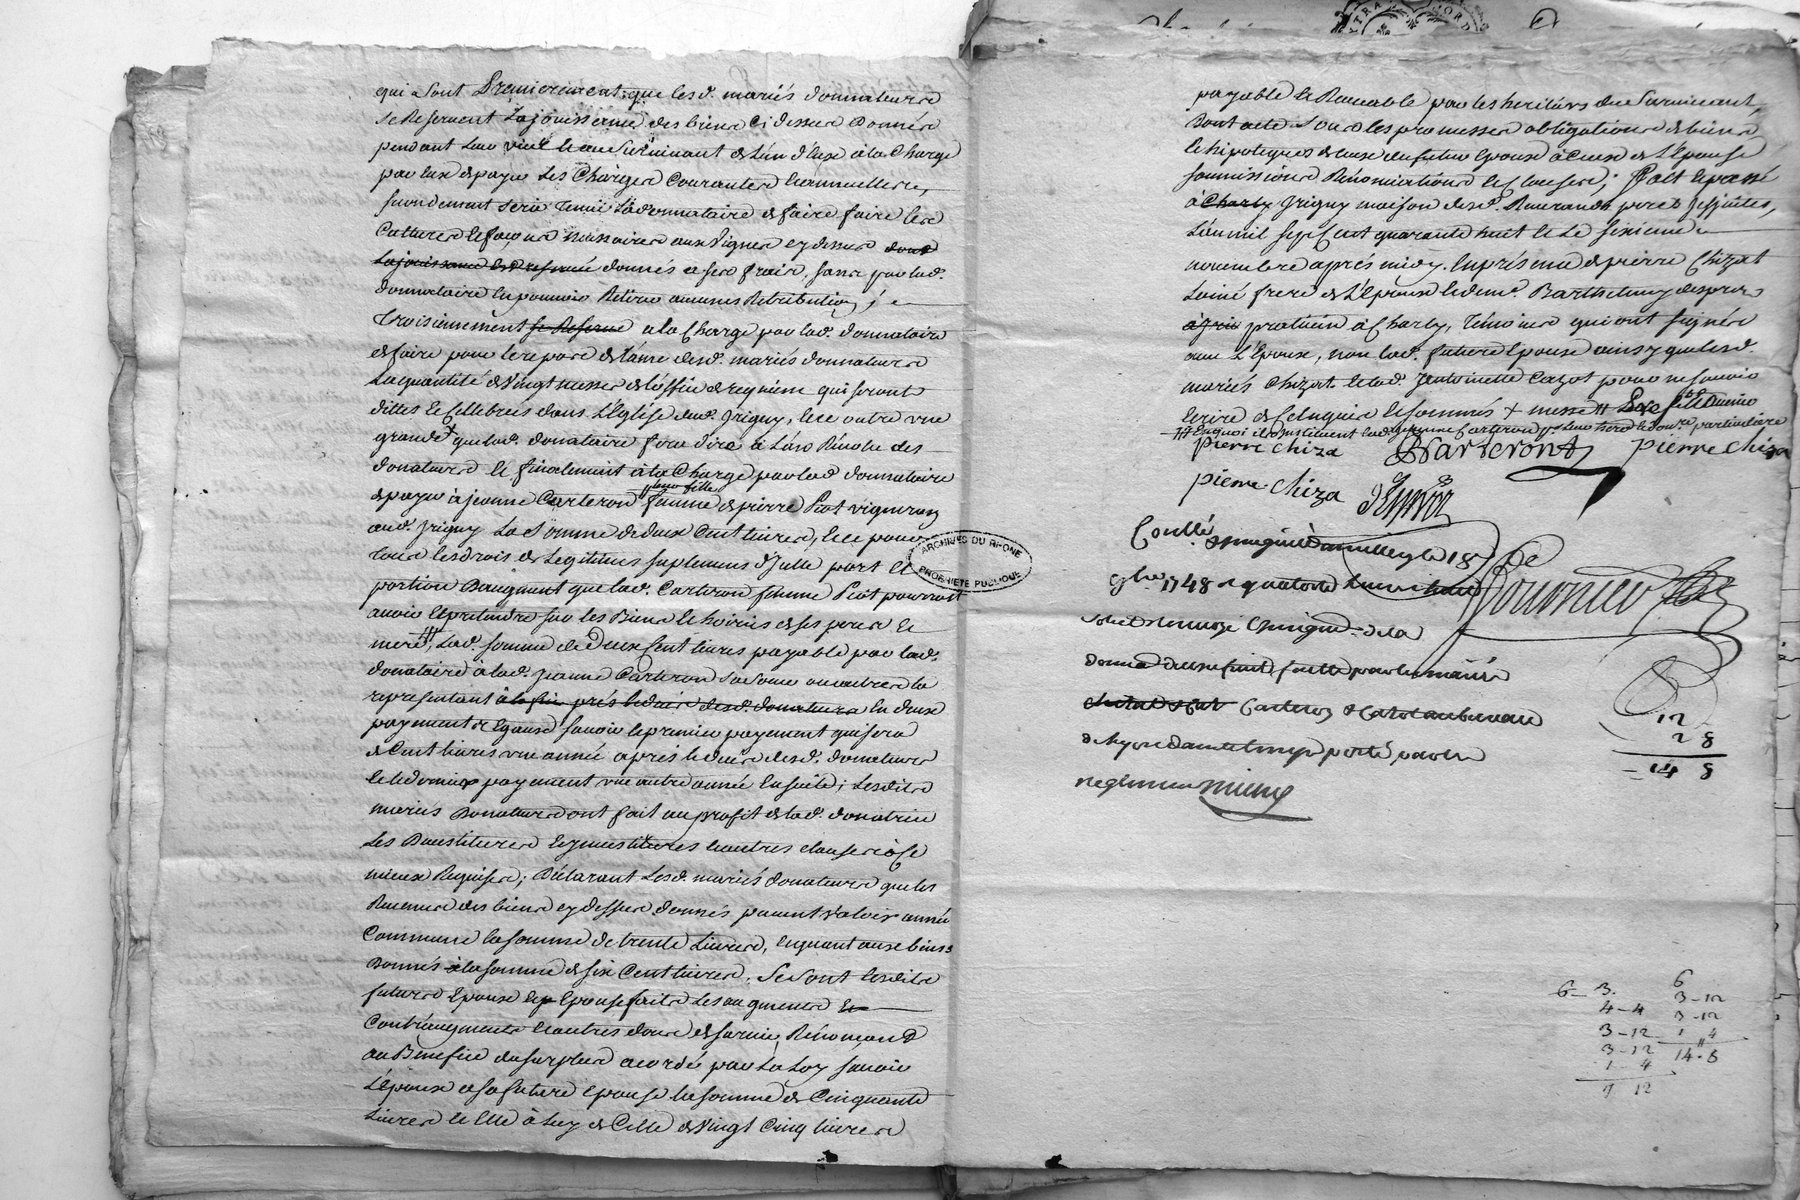 qui sont Premierement que lesd. mariés donnateurs
se Reservent La jouissance des biens cy dessus Donnés
pendant leur vie et au survivant de L'un d'eux à la Charge
par eux de payer Les Charges Courantes et annuelles,
secondement sera tenue La donnataire de faire faire les
Cultures et façons necessaires aux vignes cy dessus dont
La jouissance est reservée donnés a ses frais, sans par lad.
donnataire en pouvoir Retirer aucunes Retribution;
troisiemement se Reserve a la Charge par lad. donnataire
de faire pour le repos de l'ame desd. mariés donnateurs
La quantité de vingt messes de l'office de requiem qui seront
dittes et Cellebrées dans L'Eglise dud. Irigny, et ce outre une
grande + que lad. donataire fera dire à L'un Revolue des
donateurs et finalement à la Charge par lad. donnataire
de payer à jeanne Carteron leur fille femme de pierre Piot vigneron
aud. Irigny La somme de deux Cent livres, et ce pour
tous les droits de Legitimes suplement d'jcelle part et
portion D'augment que lad. Carteron femme Piot pourroit
avoir et pretendre sur les Biens et hoiries de ses pere et
mere, Lad. somme de Deux Cent livres payable par lad.
donataire à lad. jeanne Carteron sa soeur ou autres la
representant à la fin prés le decés desd. donateurs En deux
payements Egaux savoir le premier payement qui sera
de Cent livres une année aprés le decés desd. donateurs
et le dernier payement une autre année Ensuite; Lesdits
mariés Donateurs ont fait au profit de lad. donatrice
Les Devestitures et jnvestitures et autres clauses à ce
mieux Requises; Déclarant Lesd. mariés donateurs que les
Revenus des biens cy dessus donnés peuvent valoir année
Commune la somme de trente Livres, Et quant aux biens
Donnés à la somme de six Cent livres, Se sont lesdits
futurs Epoux et Epouse faits Les augments et
Contr'augments et autres dons de survie, Renonceant
au Benefice du surplus acordé par La Loy savoir
L'époux a sa future epouse la somme de Cinquante
Livres et Elle à Luy de Celle de vingt Cinq livres
payable et Recevable par les heritiers du survivant,
Dont acte sous les promesses obligations de biens
et hipoteques de ceux du futur Epoux à Ceux de L'Epouse
soumissions Renonciations et Clauses; fait et passé
à Charly Irigny maison desd. pere
L'an mil sept Cent quarante huit et Le sixieme
novembre aprés midy. En presence de pierre Chizat
L'ainé frere de L'Epoux et de me. Barthelemy
praticien à Charly, témoins qui ont signés
avec L'Epoux, non lad. future Epouse ainsy que lesd.
mariés Chizat et lad. Antoinette Cazot pour ne savoir
Ecrire de Ce Enquis et sommés + messe
En quoi ils Constituent lad. jeanne Carteron leur heritiere particuliere
pierre chiza Carteront pierre Chiza
pierre chiza
Conllé et insinué à millery le 18
9bre 1748
dans le temps porté par le
reglement
12
2 8
14 8
6 - 3.
4 - 4
3 - 12
3 - 12
1 4
7 12
6
3 - 12
3 - 12
1 4
14 . 8
ARCHIVES DU RHONE
PROPRIETE PUBLIQUE